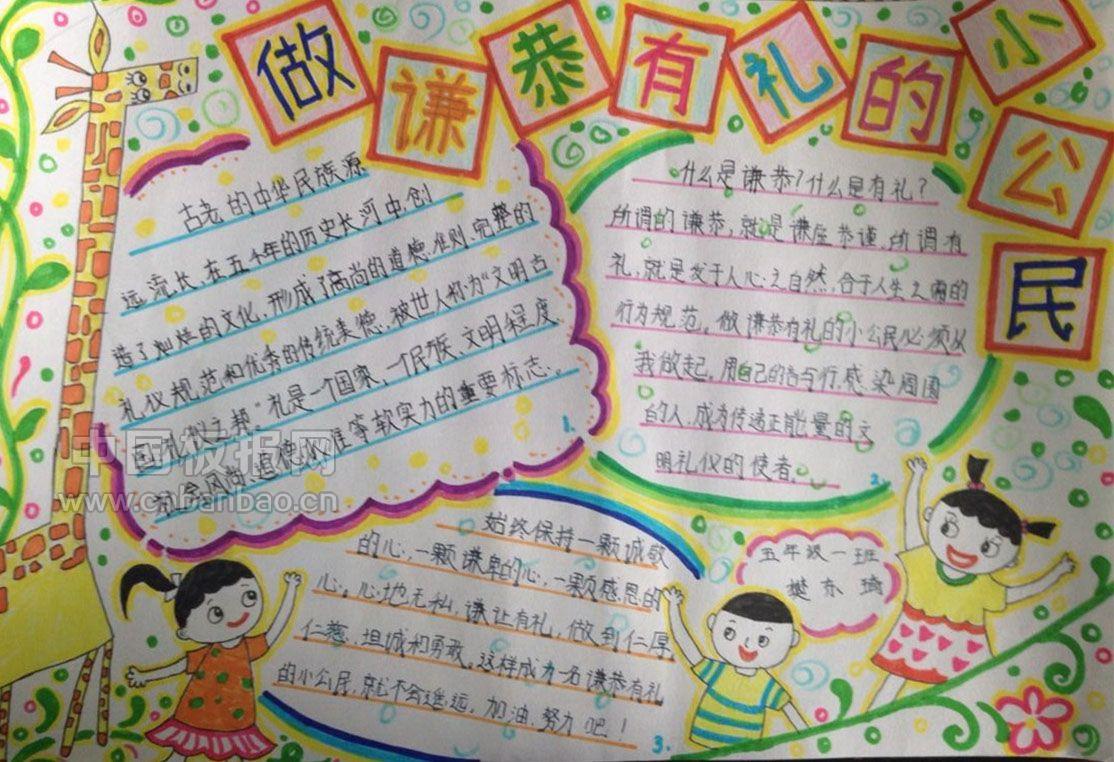 做谦恭有礼的小公民
古老的中华民族源
远流长、在五千年的历史长河中创
造了灿烂的文化,形成了高尚的道德准则、完整的
礼仪规范和优秀的传统美德,被世人称为“文明古
国,礼仪之邦”礼是一个国家、一个民族、文明程度
社会风尚、道德水准等软实力的重要标志。
1.
什么是谦恭?什么是有礼?
所谓的谦恭,就是谦虚恭谨,所谓有
礼,就是发于人心之自然,合于人生之需的
行为规范。做谦恭有礼的小公民必须从
我做起,用自己的言与行,感染周围
的人,成为传递正能量的文
明礼仪的使者。
2.
始终保持一颗诚敬
的心,一颗谦卑的心,一颗感恩的
心。心地无私,谦让有礼,做到仁厚
仁慈、坦诚和勇敢。这样成为一名谦恭有礼
的小公民,就不会遥远,加油,努力吧!
3.
五年级一班
樊东琦
中国板报网
www.cnbanbao.cn